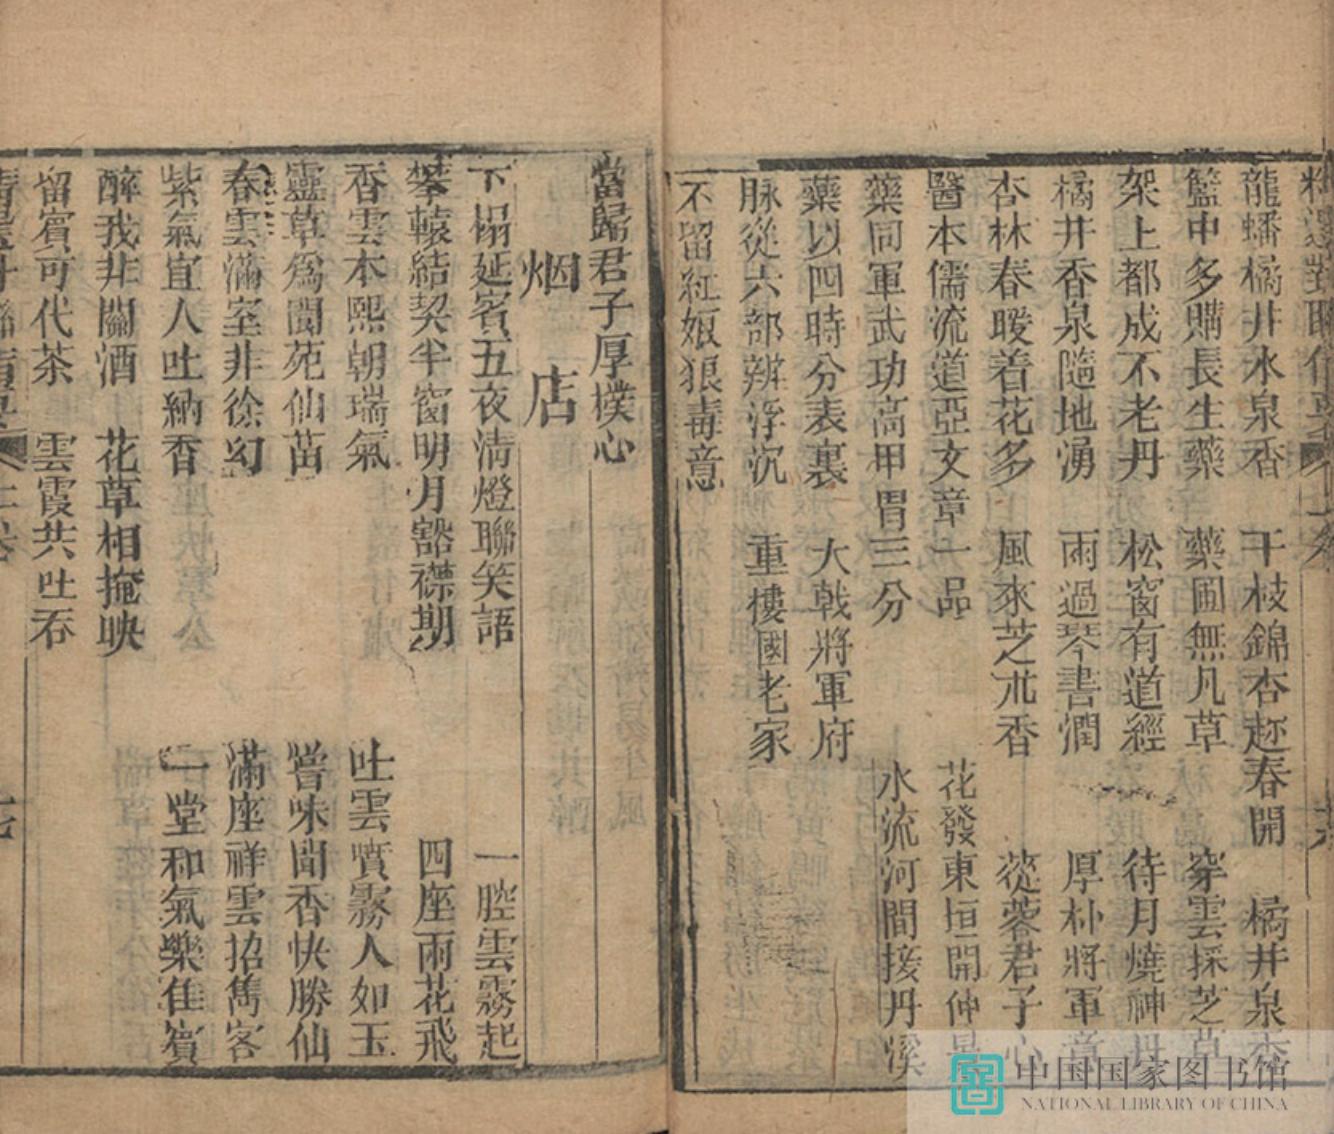 龍蟠橘井水泉香　千枝錦杏趂春開　橘井泉香
籃中多購長生藥　藥圃無凡草　穿雲採芝草
架上都成不老丹　松窗有道經　待月燒神丹
橘井香泉隨地湧　雨過琴書潤　厚朴將軍意
杏林春暖着花多　風來芝朮香　蓯蓉君子心
醫本儒流道亞文章一品　花發東垣開仲景
藥同軍武功高甲冑三分　水流河間接丹溪
藥以四時分表裏　大戟將軍府
脉從六部辨浮沉　重樓國老家
不留紅娘狠毒意
當歸君子厚樸心
烟店
下榻延賓五夜淸燈聯笑語　一腔雲霧起
攀轅結契半窗明月豁襟期　四座雨花飛
香雲本熙朝瑞氣　吐雲噴霧人如玉
靈草爲閬苑仙苗　嘗味聞香快勝仙
春雲滿室非徐幻　滿座祥雲招雋客
紫氣宜人吐納香　一堂和氣樂佳賓
醉我非關酒　花草相掩映
留賓可代茶　雲霞共吐吞
中国国家图书馆
NATIONAL LIBRARY OF CHINA